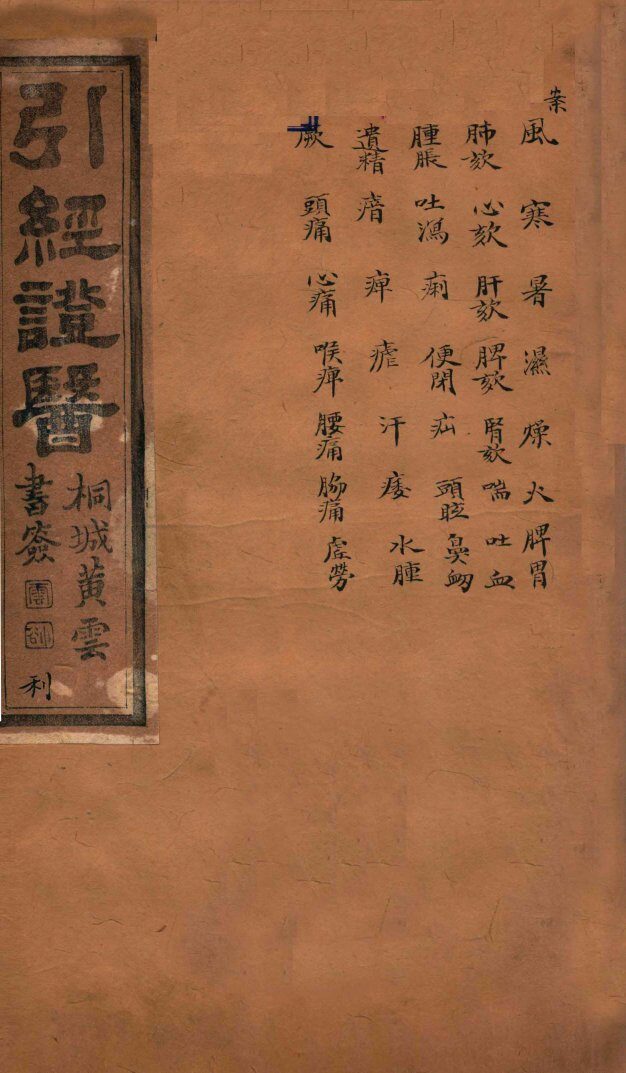 案
風 寒 暑 濕 燥 火 脾胃
肺欬 心欬 肝欬 脾欬 腎欬 喘 吐血
腫脹 吐瀉 痢 便閉 疝 頭眩 鼻衂
遺精 瘖 痺 瘧 汗 痿 水腫
厥 頭痛 心痛 喉痺 腰痛 胁痛 虛勞
引經證醫
桐城黃雲
書簽
利